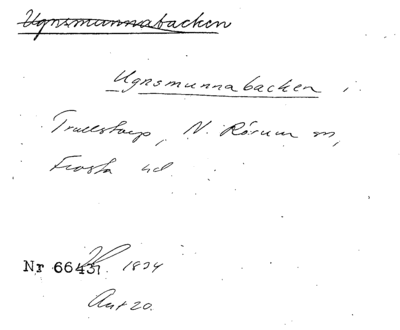 Ugnsmunnabacken
Ugnsmunnabacken i
Trulstorp, N. Rörum sn,
Frosta hd.
Nr 66431. 1834
Ant 20.